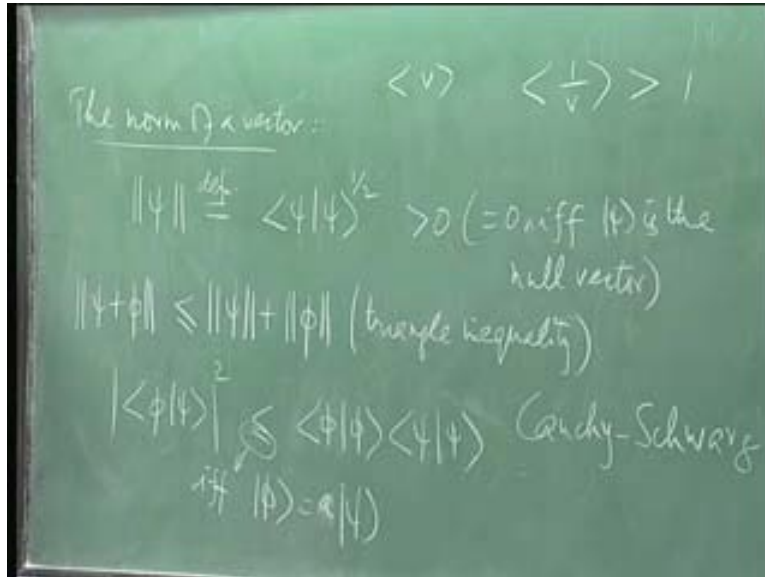 <v> <1/v> > 1
The norm of a vector:
||ψ|| def. = <ψ|ψ>^1/2 >0 (=0 iff |ψ> is the
null vector)
||ψ+ϕ|| ≤ ||ψ|| + ||ϕ|| (triangle inequality)
|<ϕ|ψ>|^2 ≤ <ϕ|ϕ><ψ|ψ> Cauchy-Schwarz
iff |ϕ> = a|ψ>